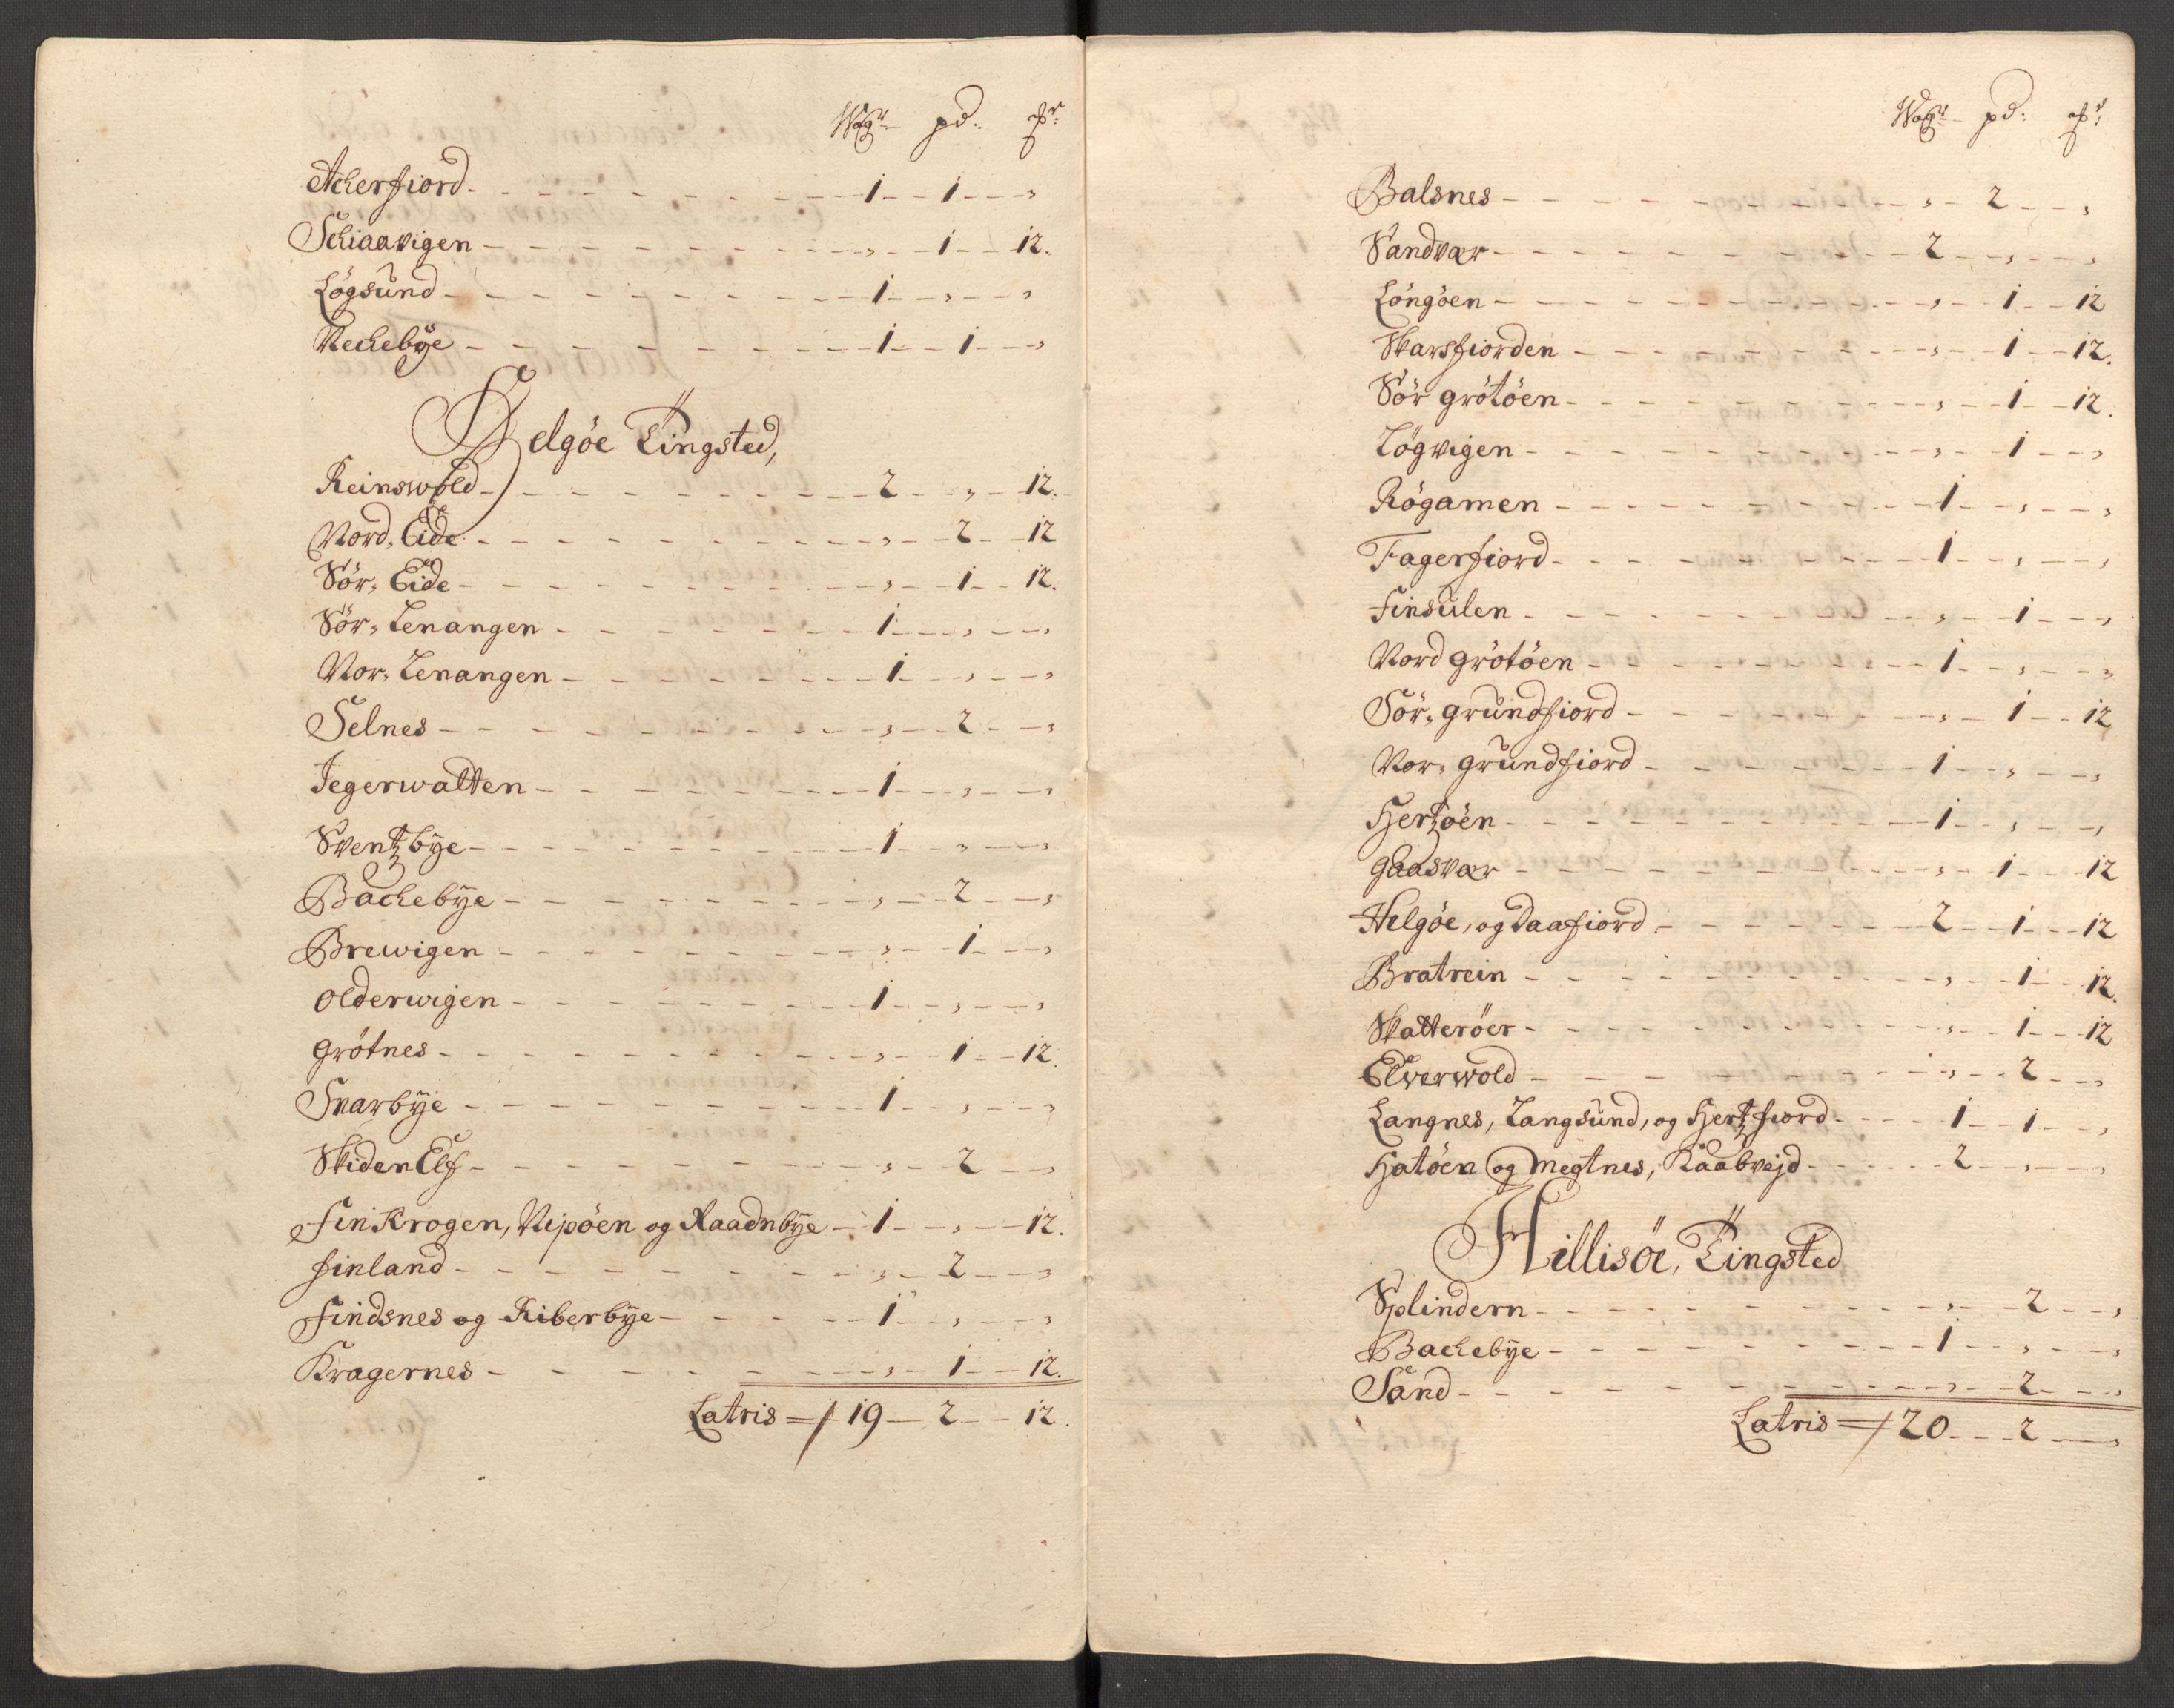 Wogr pd: mrk:
Ackerfiord - 1 - 1 - "
Schiaavigen - " - 1 - 12.
Lögsund - 1 - " - "
Neckebÿe - 1 - 1 - "
Helgöe Tingsted,
Reinswold - 2 - " - 12.
Nord, Eide - " - 2 - 12
Sör, Eide - " - 1 - 12.
Sör, Lenangen - 1 - " - "
Nor, Lenangen - 1 - " - "
Selnes - " - 2 - "
Jegerwatten - 1 - " - "
Sventzbÿe - 1 - " - "
Backebÿe - " - 2 - "
Brewigen - " - 1 - "
Olderwigen - 1 - " - "
Grötnes - " - 1 - 12.
Snarbÿe - 1 - " - "
Skiden Elf - " - 2 - "
Finkrogen, Nipöen og Raadnbÿe - 1 - " - 12.
Finland - " - 2 - "
Findsnes og Riberbÿe - 1 - " - "
Kragernes - " - 1 - 12.
Latris = / 19 - 2 - 12.
Wogr pd: mrk:
Balsnes - " - 2 - "
Sandvær - 2 - " - "
Löngöen - " - 1 - 12
Skarsfiorden - " - 1 - 12.
Sör grötöen - " - 1 - 12.
Lögvigen - " - 1 - "
Rögamen - 1 - " - "
Fagerfiord - 1 - " - "
Finsulen - " - 1 - "
Nord grötöen - 1 - " - "
Sör, grundfiord - " - 1 - 12
Nor, grundfiord - 1 - " - "
Hertzöen - 1 - " - "
Gaasvær - " - 1 - 12
Helgöe, og Daafiord - 2 - 1 - 12
Bratrein - " - 1 - 12.
Skatteröer - " - 1 - 12
Elverwold - " - 2 - "
Langnes, Langsund, og Hertzfiord - 1 - 1 - "
Hatöen og Megtnes, Kaabvejd - 2 - " - "
Hillisöe, Tingsted
Splindern - " - 2 - "
Backebÿe - 1 - " - "
Sand - " - 2 - "
Latris = / 20 - 2 - "